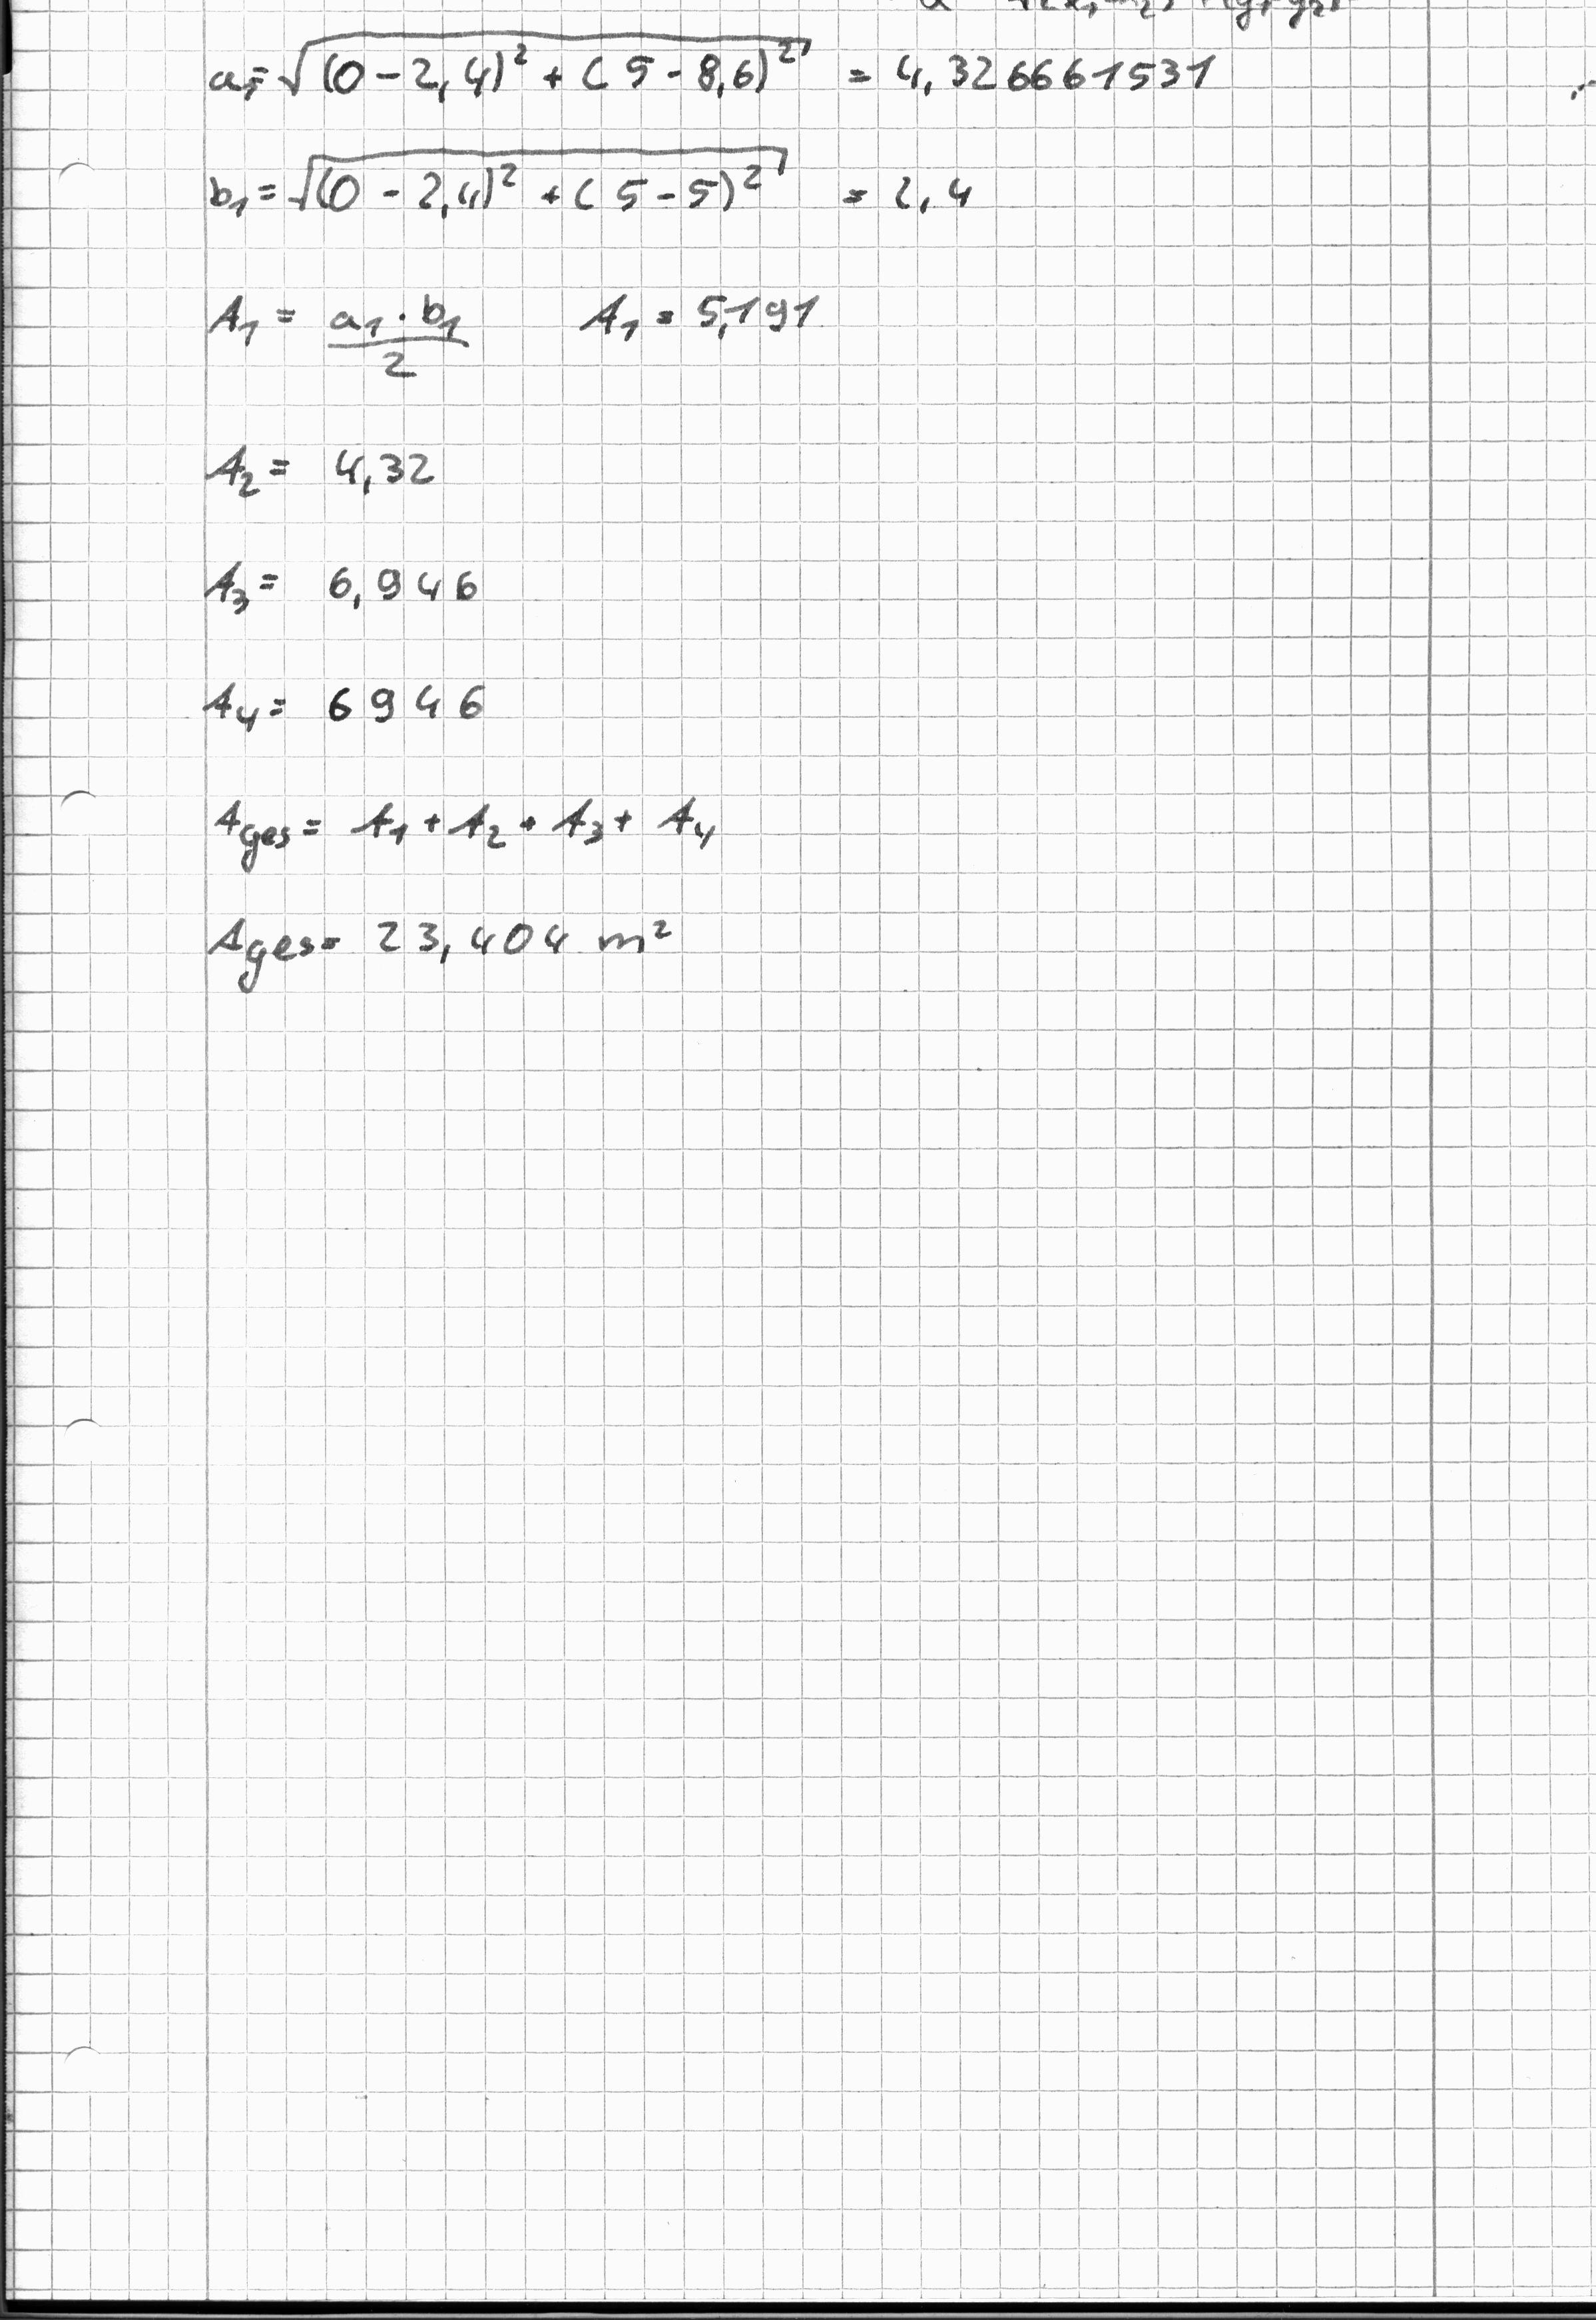 a₁ = √((0 - 2,4)² + (5 - 8,6)²) = 4,326661531
b₁ = √((0 - 2,4)² + (5 - 5)²) = 2,4
A₁ = (a₁ · b₁)/2 A₁ = 5,191
A₂ = 4,32
A₃ = 6,946
A₄ = 6946
Ages = A₁ + A₂ + A₃ + A₄
Ages = 23,404 m²